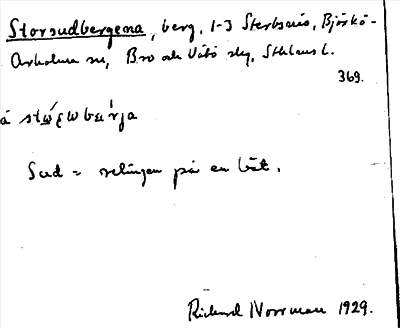 Storsudbergena, berg, 1-3 Sterbsnäs, Björkö-
Arholma sn, Bro och Vätö skg, Sthlms l.
369.
Sud = relingen på en båt.
Rickard Norrman 1929.